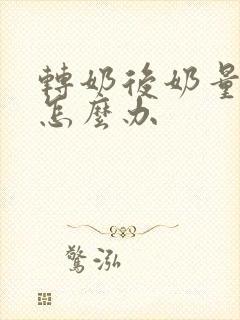 轉奶後奶量
怎麼办
驚泓